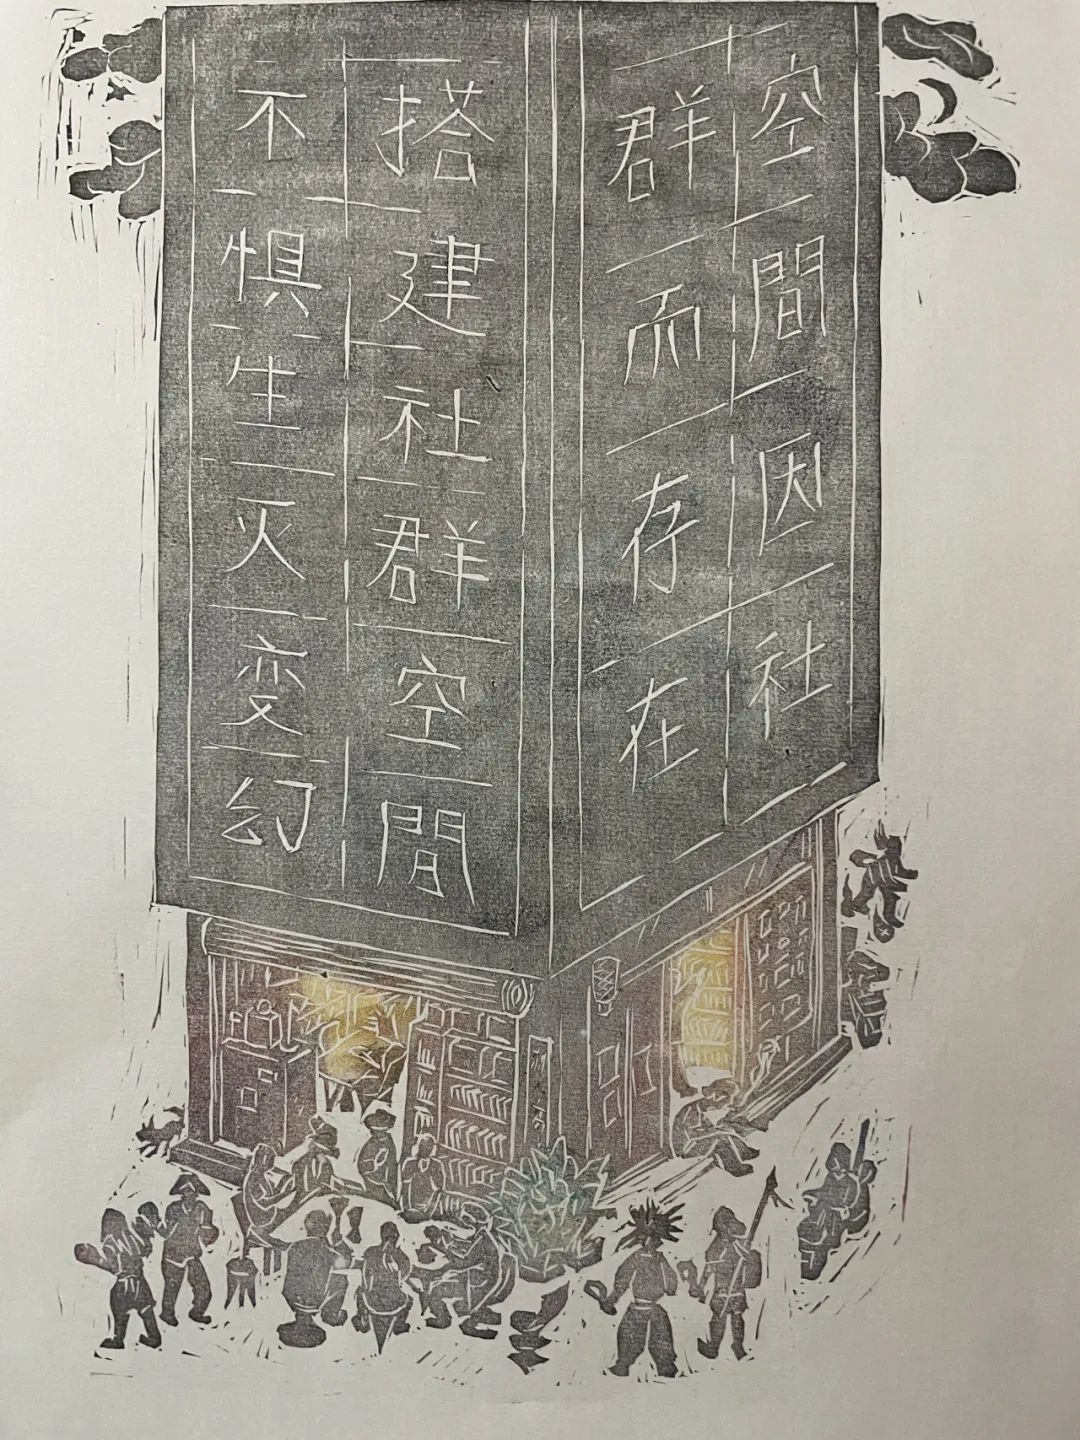 空間因社
群而存在
搭建社群空間
不惧生灭变幻